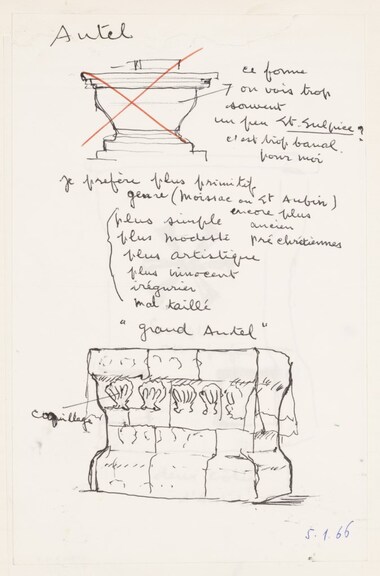 Autel
ce forme
on vois trop
souvent
un peu St Sulpice?
c'est trop banal
pour moi
je prefère plus primitif
genre (Moissac ou St Aubin)
encore plus
plus simple ancien
plus modeste préchrétiennes
plus artistique
plus innocent
irégurier
mal taillé
"grand Autel"
coquillages
5.1.66